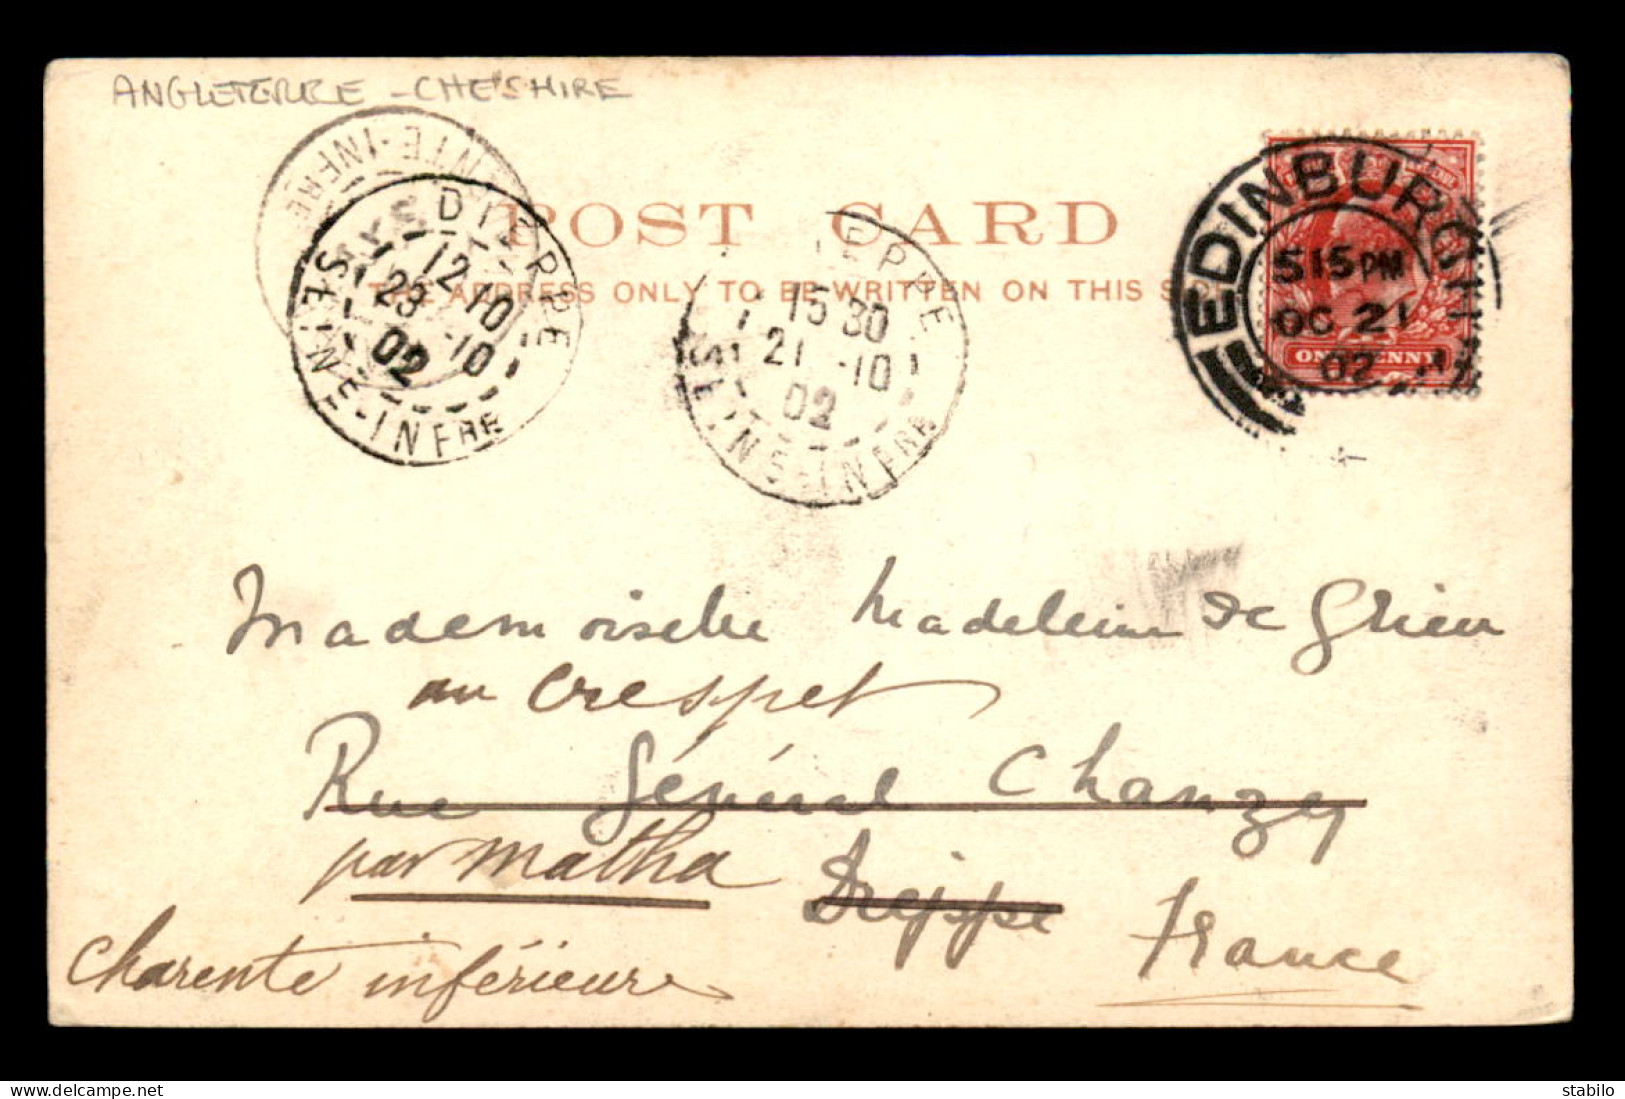 ANGLETERRE - CHESHIRE
POST CARD
THE ADDRESS ONLY TO BE WRITTEN ON THIS
NTE-INFRE
DIEPPE
12-10
23 -10
02
SEINE-INFRE
IEPPE
15 30
21 -10
02
SEINE-INFRE
EDINBURGH
5 15 PM
OC 21
02
ONE PENNY
Mademoiselle Madeleine de Grieu
au Crespet
Rue Général Chanzy
par Matha Dieppe
France
Charente inférieure
delcampe.net
stabilo